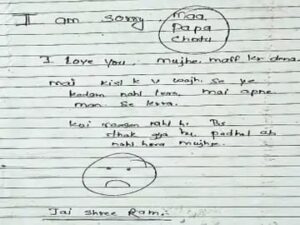 I am sorry
maa
Papa
Chotu
I love you. mujhe maff kr dena.
mai kisi k v wajh se ye
kadam nahi lera, mai apne
man se kera.
koi reason nahi h. Bs
thak gya hu padhai ab
nahi hora mujhse.
Jai Shree Ram.